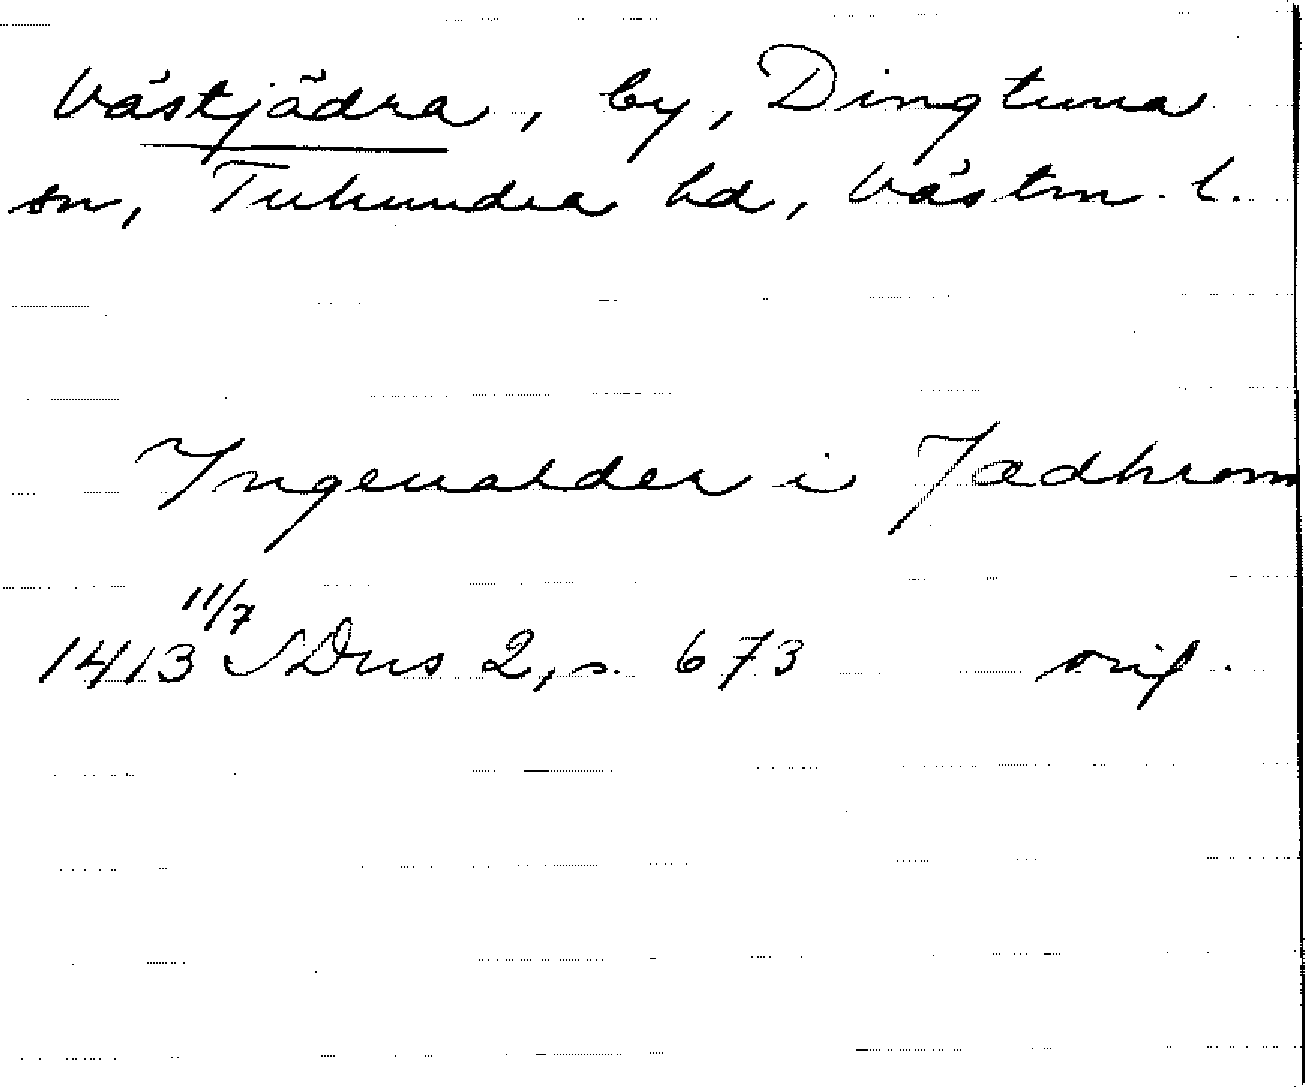 Västjädra, by, Dingtuna
sn, Tuhundra hd, Västm. l.
Ingeualder i Jædhrom
1413 11/7 SDns 2, s. 673 orig.